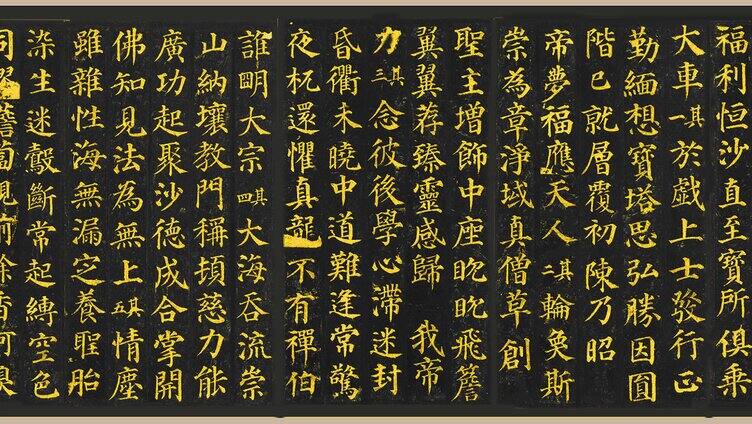 福利恒沙直至寶所俱乘
大車其一於戲上士發行正
勤緬想寶塔思弘勝因圓
階已就層覆初陳乃昭
帝夢福應天人其二輪奐斯
崇為章淨域真僧草創
聖主增飾中座眈眈飛簷
翼翼荐臻靈感歸 我帝
力其三念彼後學心滯迷封
昏衢未曉中道難逢常驚
夜杌還懼真龍不有禪伯
誰明大宗其四大海吞流崇
山納壤教門稱頓慈力能
廣功起聚沙德成合掌開
佛知見法為無上其五情塵
雖雜性海無漏定養聖胎
染生迷鷇斷常起縛空色